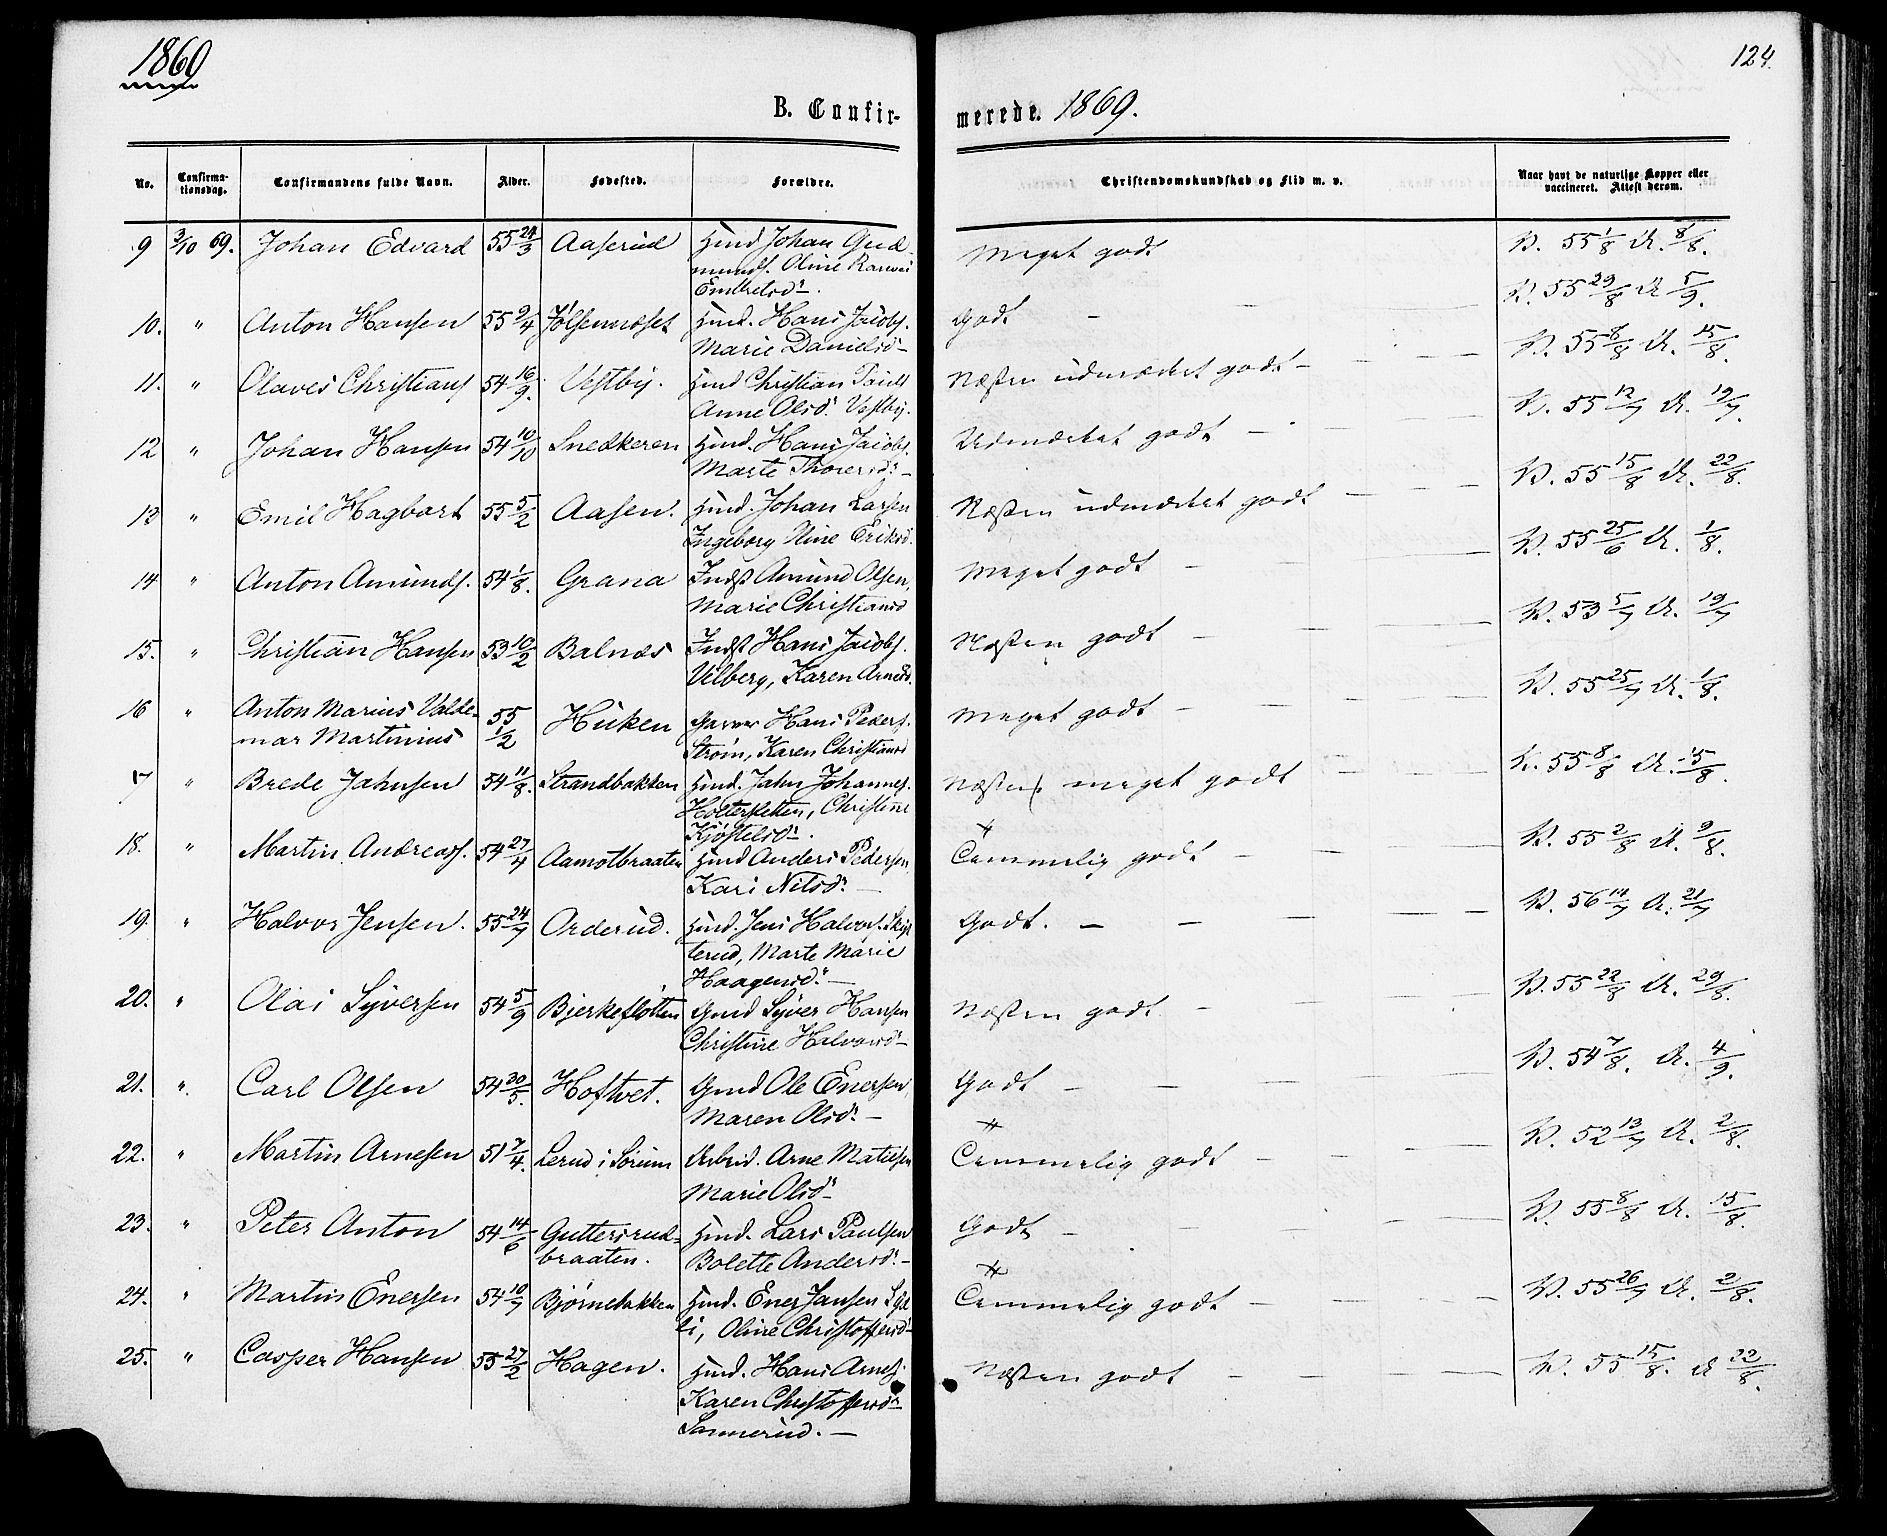 1869
124.
B. Confir-
merede. 1869.
No.
Confirma-
tionsdag.
Confirmandens fulde Navn.
Alder.
Fødested.
Forældre.
Christendomskundskab og Flid m. v.
Naar havt de naturlige Kopper eller
vaccineret. Attest derom.
9 3/10 69. Johan Edvard 55 24/3 Aaserud Huusd Johan Gud- Meget godt V. 55 1/8 A. 8/8.
munds. Oline
Embretsdr.
10. " Anton Hansen 55 9/4 Jølsennæset Huusd. Hans Jacobs. Godt — V. 55 29/8 A 5/9.
Marie Danielsd —
11. " Olaves Christians 54 16/9. Vestby. Huusd Christian Pauls Næsten udmærket godt — V. 55 8/8 A. 15/8.
Anne Olsd. Vestby.
12 " Johan Hansen 54 10/10 Snedkeren Huusd. Hans Jacobs. Udmærket godt — V. 55 12/7 A. 19/7.
Marte Thoresdr. —
13 " Emil Hagbart 55 5/2 Aasen. Huusd. Johan Larsen Næsten udmærket godt V. 55 15/8 A. 22/8.
Ingeborg Eriksd.
14 " Anton Amunds. 54 1/8. Grana Indst Amund Olsen, Meget godt — V. 55 25/6 A. 1/8.
Marie Christiansd
15. " Christian Hansen 53 10/2 Balnæs Indst Hans Jacobs. Næsten godt — V. 53 5/7 A. 19/7
Vilberg, Karen Arnesd.
16 " Anton Marius Valde- 55 1/2 Huken Garver Hans Peders. Meget godt — V. 55 25/7 A. 1/8.
mar Martinius Strøm, Karen Christiansd
17 " Brede Jahnsen 54 11/8. Strandbakken Huusd. Jahn Johannes. Næsten meget godt V. 55 8/8 A. 15/8.
Christine
Kjøstelsdr.
18. " Martin Andreass. 54 27/4 Aamotbraaten Huusd Anders Pedersen, Temmelig godt — V. 55 2/8 A. 9/8.
Kari Nilsdr. —
19. " Halvor Jensen. 55 24/7 Orderud. Huusd. Jens Halvors. Skyt Godt. — V. 56 14/7 A. 21/7
terud, Marte Marie
Haagensdr. —
20. " Olai Syversen 54 5/9 Bjerkesløtten Gmd Syver Hansen Næsten godt — V. 55 22/8 A. 29/8.
Christine Halvorsd —
21. " Carl Olsen 54 30/5. Hoftvet. Gmd Ole Enersen, Godt — V. 54 7/8. A. 4/9.
Maren Olsdr. —
22. " Martin Arnesen 51 7/4. Lerud i Sørum Arbeid. Arne Matisen Temmelig godt — V. 52 12/7 A. 2/8.
Marie Olsdr —
23. " Peter Anton 54 14/6 Guttersrud- Huusd. Lars Paulsen Godt — V. 55 8/8 A. 15/8.
braaten. Bolette Andersdr. —
24. " Martin Enersen 54 10/7 Bjørnebakken Huusd. Ener Jansen Lyd Temmelig godt — V. 55 26/7 A. 2/8.
li, Oline Christoffersdr —
25. " Casper Hansen 55 27/2 Hagen. Huusd. Hans Arnes. Næsten godt — V. 55 15/8. A 22/8.
Karen Christoffersdr
Sannerud. —